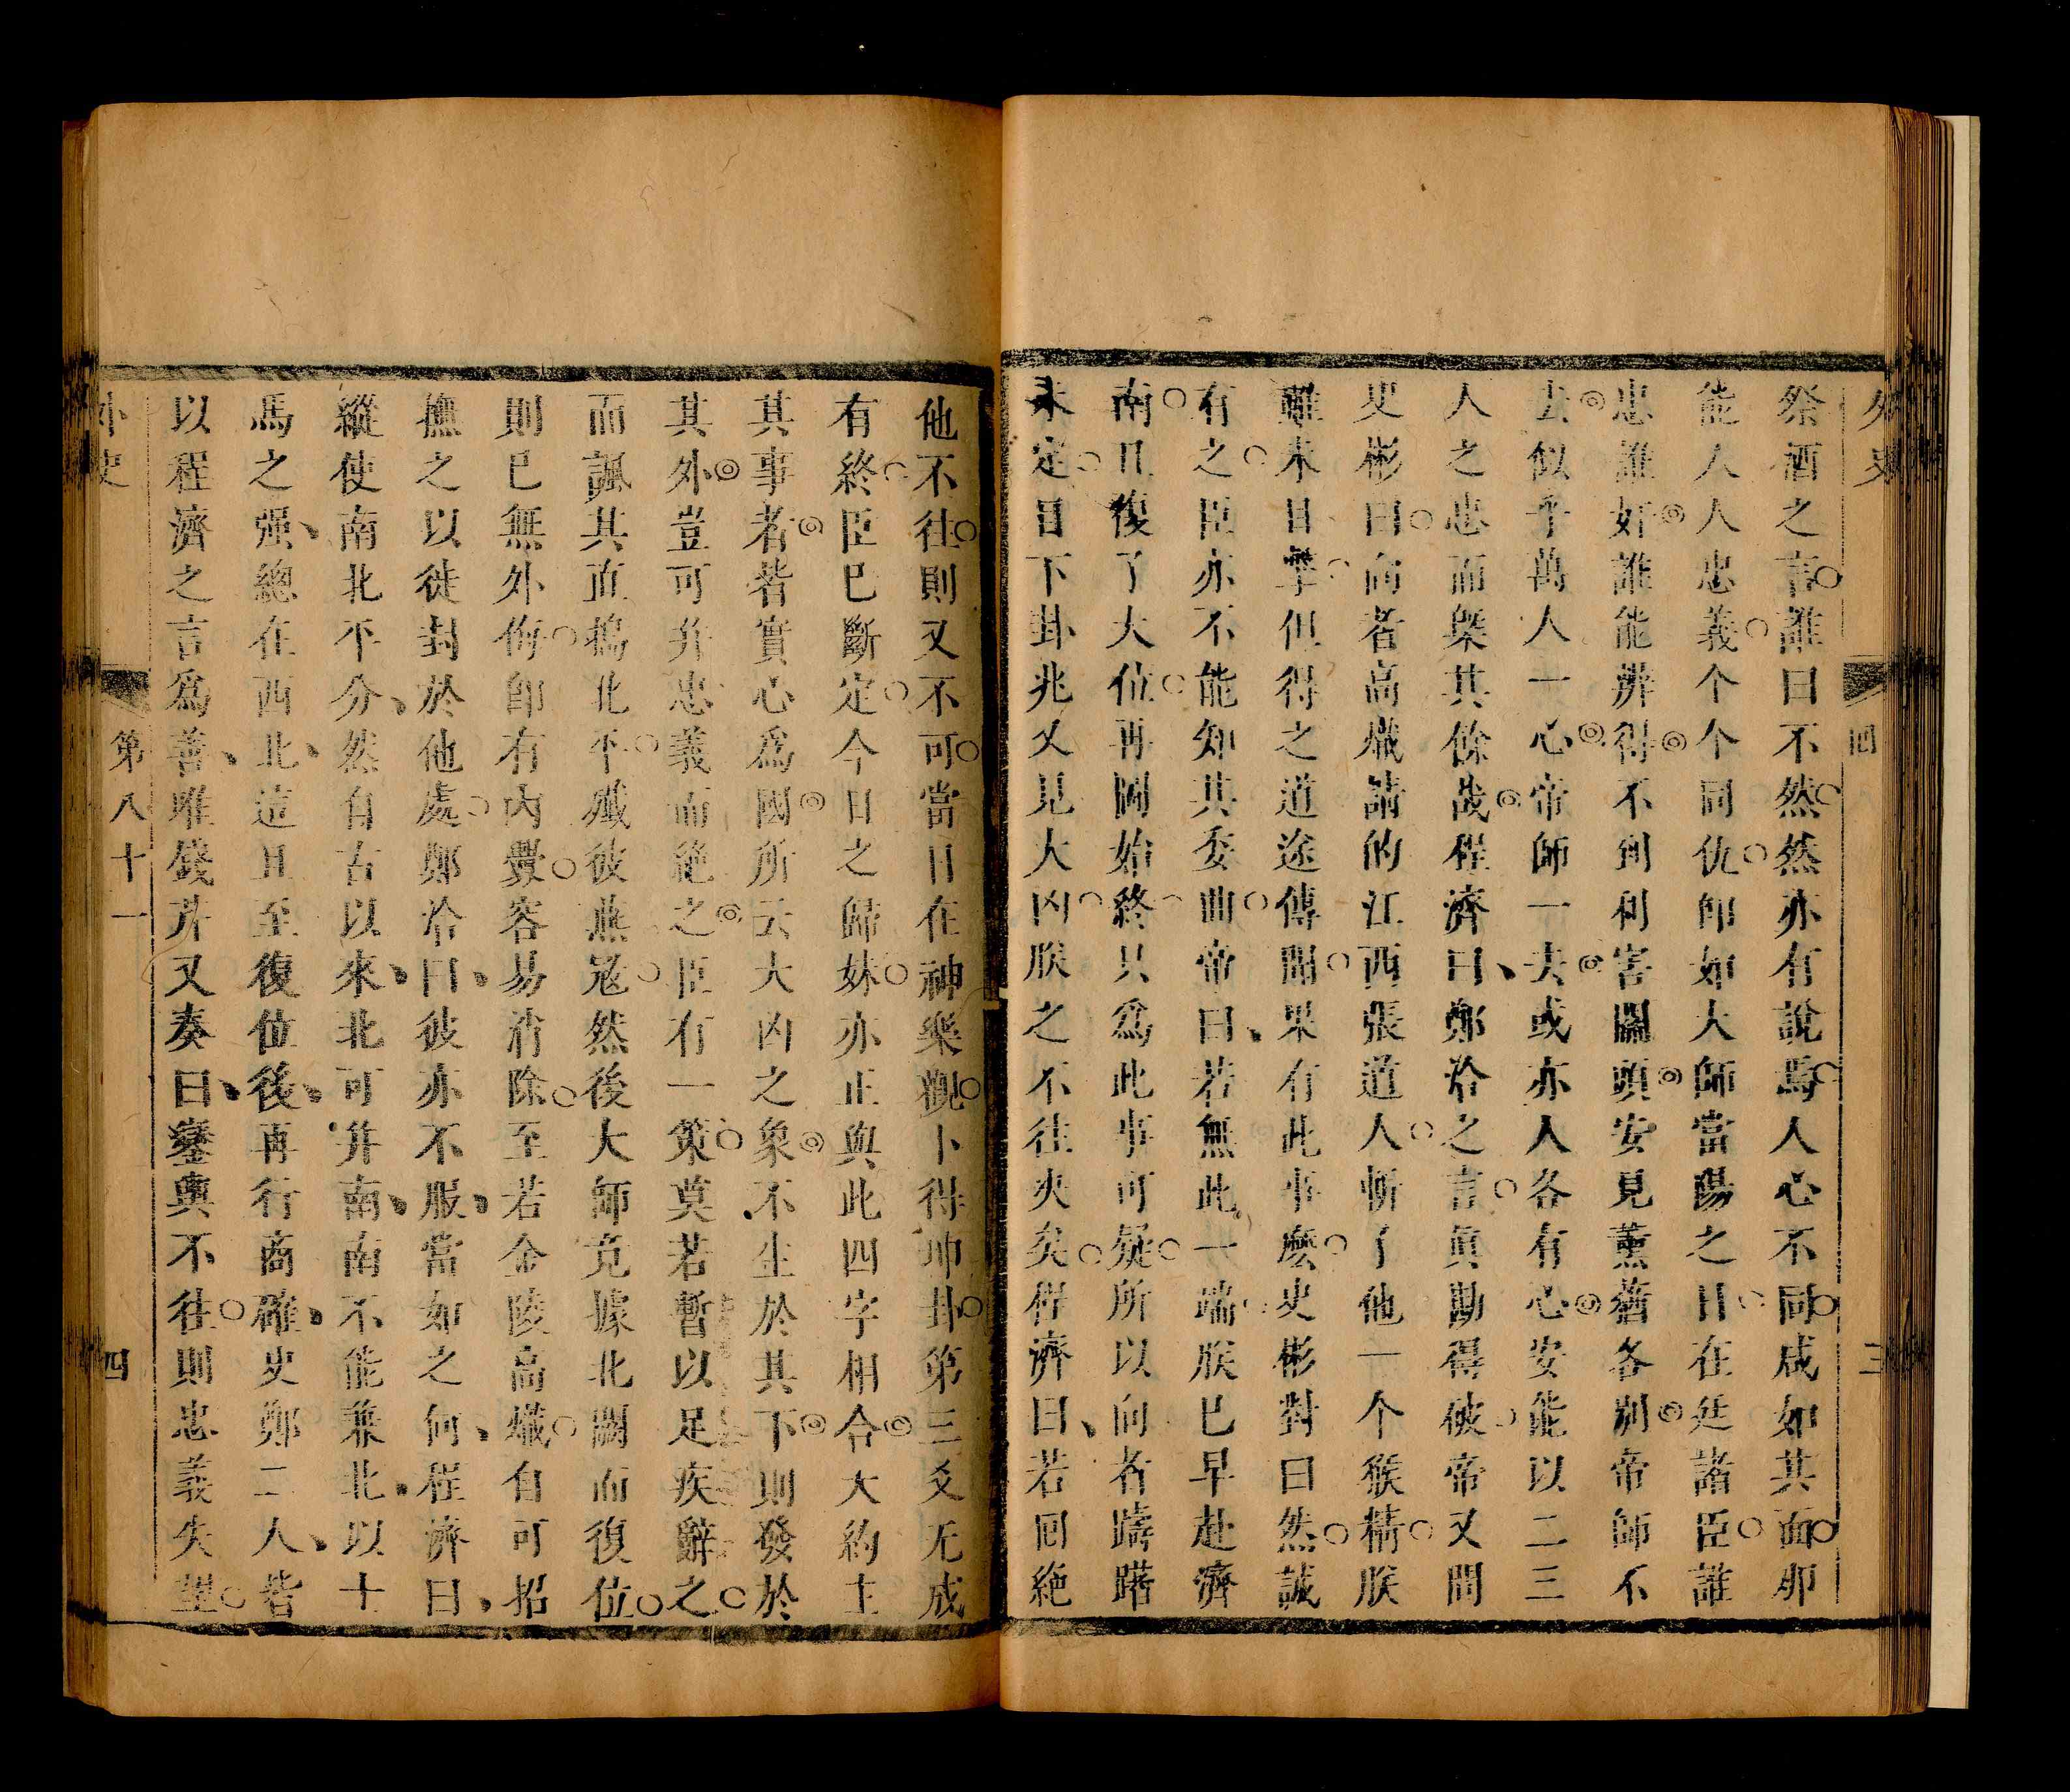 外史
回
三
祭酒之言誰曰不然然亦有說焉人心不同咸如其面那
能人人忠義个个同仇卽如大師當陽之日在廷諸臣誰
忠誰奸誰能辨得不到利害關頭安見薰蕕各別帝師不
去似乎萬人一心帝師一去或亦人各有心安能以二三
人之忠而槩其餘哉程濟曰鄭洽之言眞勘得破帝又問
史彬曰向者高熾請的江西張道人斬了他一个猴精朕
雖未目擊但得之道途傳聞果有此事麼史彬對曰然誠
有之臣亦不能知其委曲帝曰若無此一端朕已早赴濟
南且復了大位再圖始終只爲此事可疑所以向者躊躇
未定目下卦兆又見大凶朕之不往夬矣程濟曰若回絶
他不往則又不可當日在神樂觀卜得坤卦第三爻无成
有終臣已斷定今日之歸妹亦正與此四字相合大約主
其事者若實心爲國所云大凶之象不生於其下則發於
其外豈可并忠義而絶之臣有一策莫若暫以足疾辭之
而諷其直搗北平殲彼燕寇然後大師竟據北闕而復位
則已無外侮卽有內釁容易消除至若金陵高熾自可招
撫之以徙封於他處鄭洽曰彼亦不服當如之何程濟曰
縱使南北平分然自古以來北可并南南不能兼北以十
馬之强總在西北這且至復位後再行商確史鄭二人皆
以程濟之言爲善唯錢芹又奏曰鑾輿不往則忠義失望
外史
第八十一
四